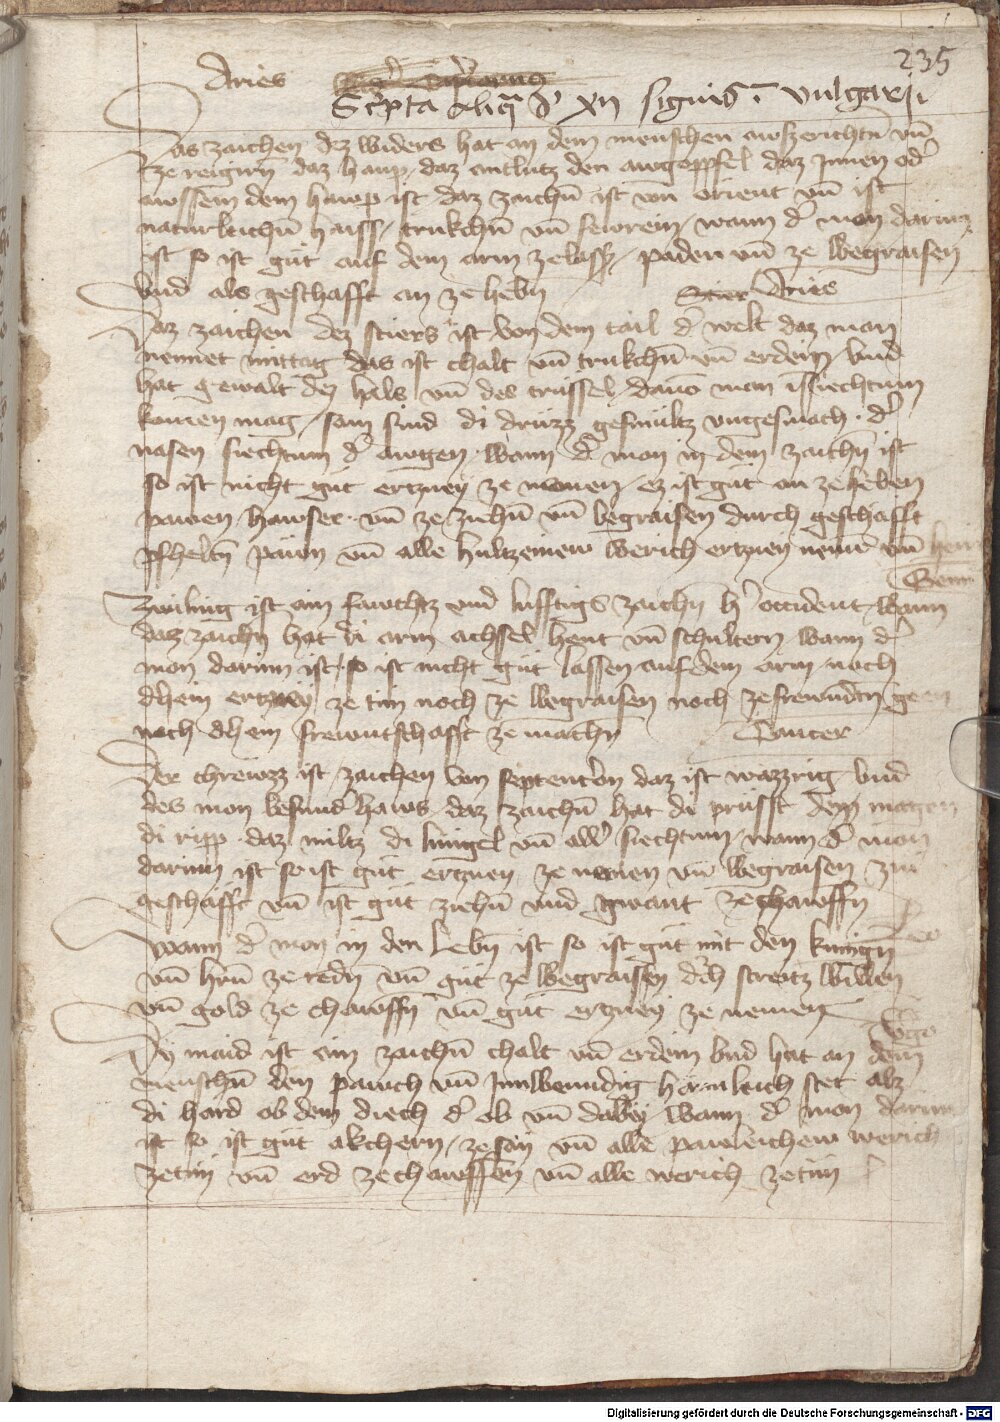 235
Aries
Scripta aliqua de xii signis in vulgari
Das zaichen dez widers hat an dem menschen auszerichtn vn̄
ze reigirn daz haup, daz antlutz den augeppfel daz Innen od̓
aussem dem haup ist daz zaichn̄ ist vo̅ orient vn̄ ist
naturleichn̄ haiss, trukchn̄ vn̄ fewrein, wann d̓ mon darinn
ist so ist gut auf dem arm ze lassn, paden vn̄ ze wegraisen
vnd als geschafft an ze hebn̄
Stier Aries
Daz zaichen dez stiers ist von dem tail d̓ welt daz man
nennet mittag das ist chalt vn̄ trukchn̄ vn̄ erdein vnd
hat gewalt dez hals vn̄ des trussel, dauō man
komen mag, sam sind di drüzz geswultz vngesmach. d̓
nasen siechtum d̓ augen. wann d̓ mon in dem zaichn̄ ist
so ist nicht gut ertzney ze nemen, ez ist gut an ze heben
pawen, hawser. vn̄ ze zichn̄ vn̄ begraisen durch geschafft
vn̄ alle hultzeinew werich ertzney neme vn̄
Gemi
Zwiling ist ain fawchtz vnd lufftigs zaichn̄ h̓ occident, wann
daz zaichn̄ hat di arm achssel hent vn̄ schultern wann d̓
mon darinn ist, so ist nicht gut lassen auf dem arm noch
dhein ertzney ze tun noch ze wegraisen noch ze frewndtn gen
noch dhein frewntschafft ze machn̄
Cancer
Der chrewzz ist zaichen von septentrion daz ist wazzrig vnd
des mon besund̓ haws daz zaichn̄ hat di prusst dem magen
di ripp. daz miltz di lungel vn̄ all̓ siechtum, wann d̓ mon
darinn ist so ist gut ertzney ze nemen vn̄ wegraisen zu
geschafft vn̄ ist gut ziehn̄ vnd gwant ze chawffn
Leo
Wann d̓ mon in den Lebn̄ ist so ist gut mit den kunign̄
vn̄ hrn̄ ze redn̄ vn̄ gut ze wegraisen d̓ch streitz willen
vn̄ gold ze chawffn̄ vn̄ gut ertzney ze nemen
Vgo
Dy maid ist ain zaichn̄ chalt vn̄ erdein vnd hat an dem
menschn̄ den pauch vn̄ Innwenndig harmleich stet alz
di hard ob dem diech d̓ ob vn̄ dabey wann d̓ mon darinn
ist so ist gut akchern, ze sän vn̄ alle pawleichew werich
ze tun vn̄ erd ze chawffen vn̄ alle werich ze tun
Digitalisierung gefördert durch die Deutsche Forschungsgemeinschaft - DFG